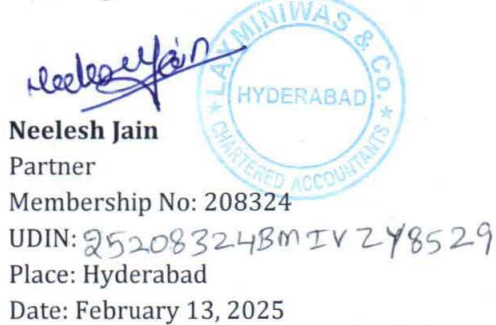 Neelesh Jain
LAXMINIWAS & Co.
HYDERABAD
* CHARTERED ACCOUNTANTS *
Neelesh Jain
Partner
Membership No: 208324
UDIN: 25208324BMIVZY8529
Place: Hyderabad
Date: February 13, 2025